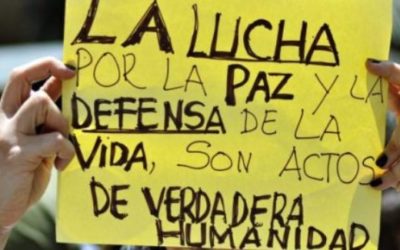 LA LUCHA
POR LA PAZ Y LA
DEFENSA DE LA
VIDA, SON ACTOS
DE VERDADERA
HUMANIDAD